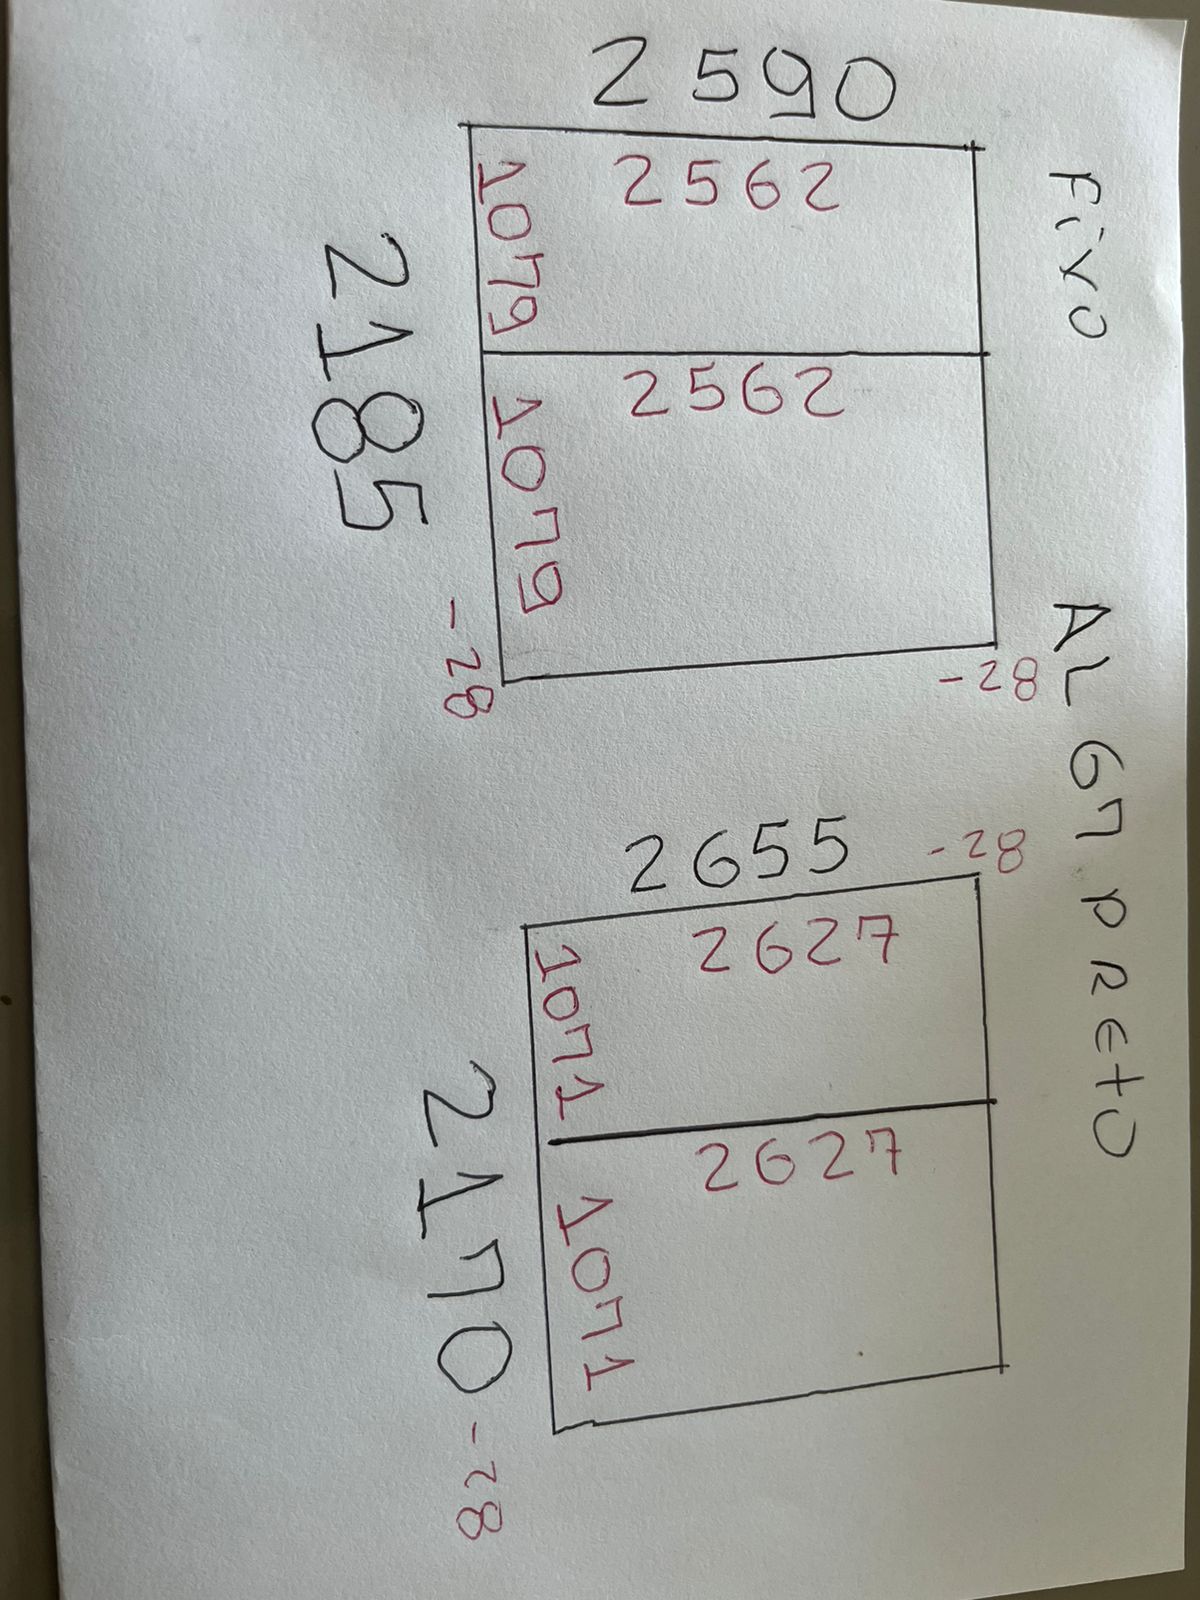 Fixo AL G7 PRETO
2590
2562
1079
2562
1079
2185
-28
-28
2655
-28
2627
1071
2627
1071
2170 -28